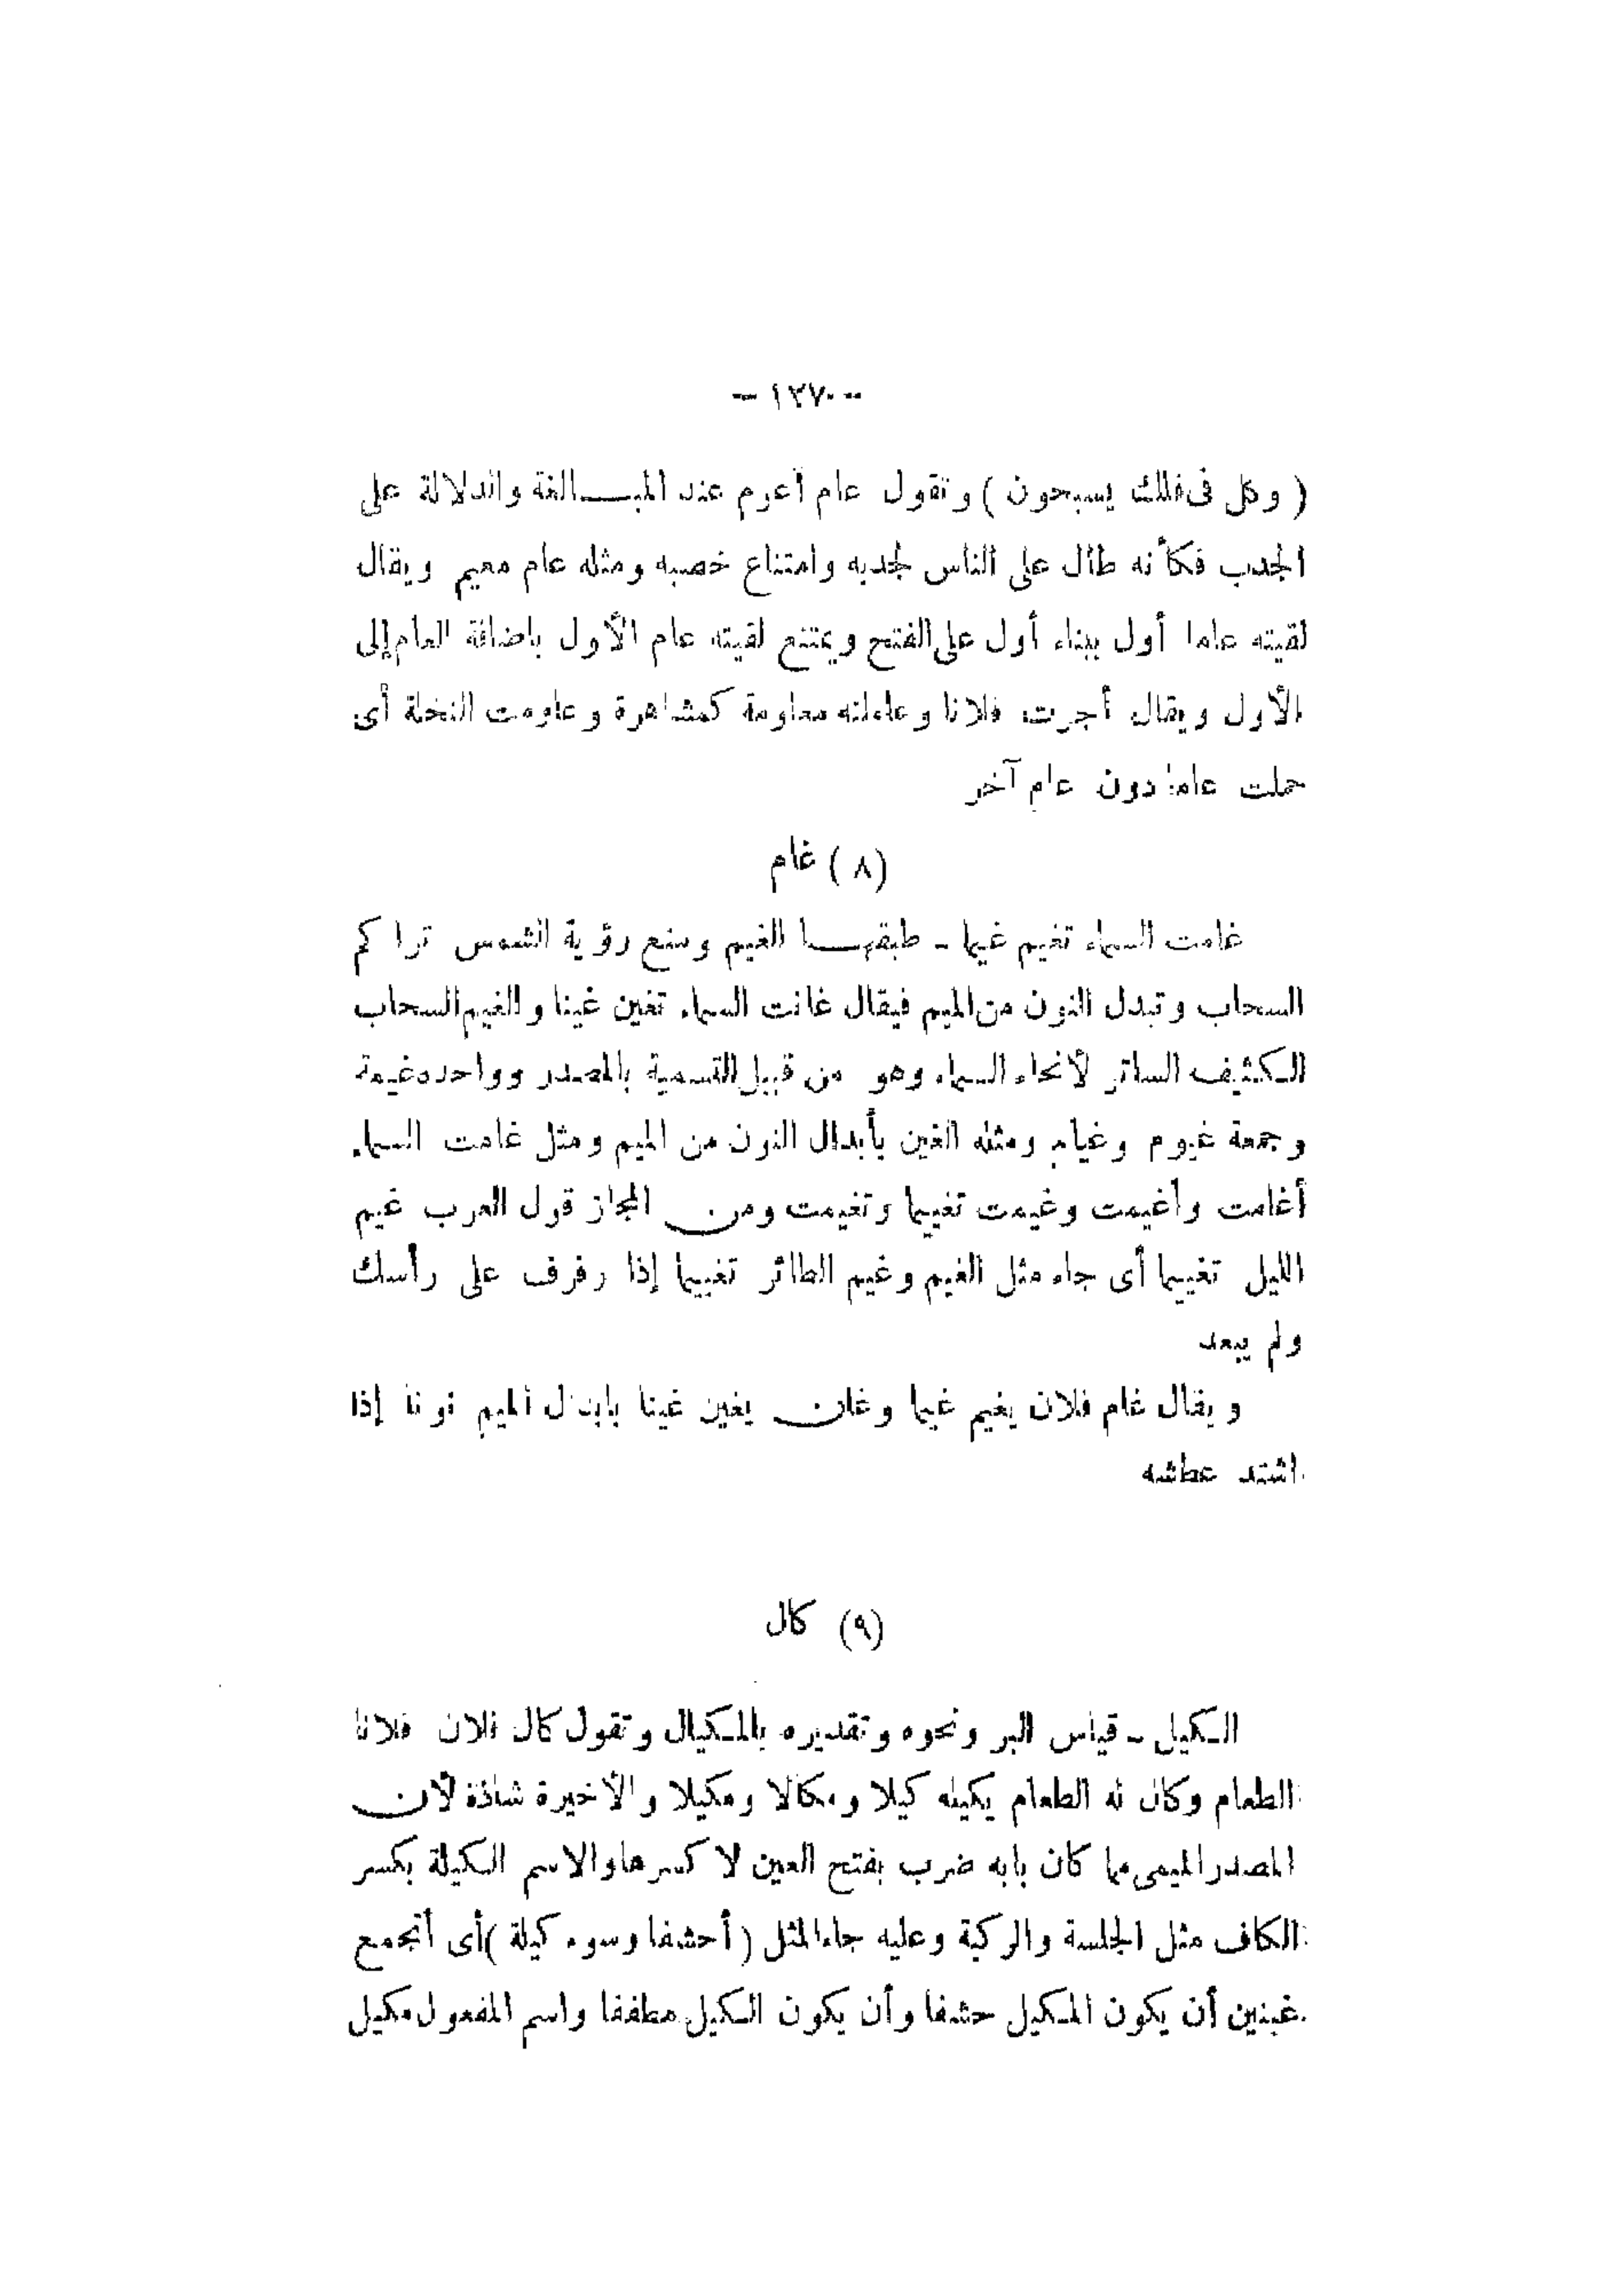 - ١٢٧ -
( وكل فى فلك يسبحون ) وتقول عام أعوم عند المبالغة والدلالة على
الجدب فكأنه طال على الناس لجدبه وامتناع خصبه ومثله عام معيم ويقال
لقيته عاما أول ببناء أول على الفتح ويمتنع لقيته عام الأول باضافة العام إلى
الأول ويقال أجرت فلانا وعاملته معاومة كمشاهرة وعاومت النخلة أى
حملت عاما دون عام آخر
(٨) غام
غامت السماء تغيم غيما - طبقها الغيم ومنع رؤية الشمس تراكم
السحاب وتبدل النون من الميم فيقال غانت السماء تغين غينا والغيم السحاب
الكثيف الساتر لأنحاء السماء وهو من قبيل التسمية بالمصدر وواحده غيمة
وجمعه غيوم وغيام ومثله الغين بأبدال النون من الميم ومثل غامت السماء
أغامت وأغيمت وغيمت تغييما وتغيمت ومن المجاز قول العرب غيم
الليل تغييما أى جاء مثل الغيم وغيم الطائر تغييما إذا رفرف على رأسك
ولم يبعد
ويقال غام فلان يغيم غيما وغان يغين غينا بابدال الميم نونا إذا
اشتد عطشه
(٩) كال
الكيل - قياس البر ونحوه وتقديره بالمكيال وتقول كال فلان فلانا
الطعام وكال له الطعام يكيله كيلا ومكالا ومكيلا والأخيرة شاذة لأن
المصدر الميمى مما كان بابه ضرب بفتح العين لا كسرها والاسم الكيلة بكسر
الكاف مثل الجلسة والركبة وعليه جاء المثل ( أحشفا وسوء كيلة ) أى أتجمع
غبنين أن يكون المكيل حشفا وأن يكون الكيل مطففا واسم المفعول مكيل